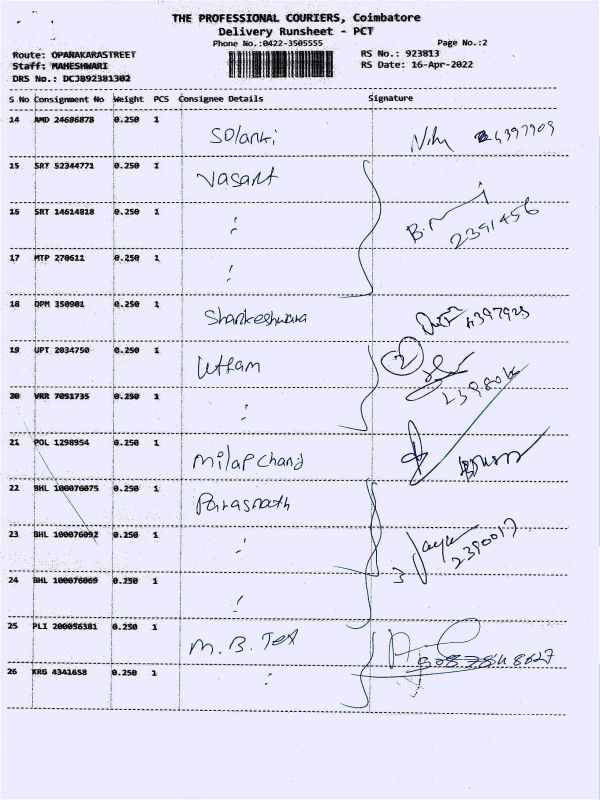 THE PROFESSIONAL COURIERS, Coimbatore
Delivery Runsheet - PCT
Phone No.:0422-3505555 Page No.:2
Route: OPANAKARASTREET RS No.: 923813
Staff: MAHESHWARI RS Date: 16-Apr-2022
DRS No.: DCJB92381302
S No Consignment No Weight PCS Consignee Details Signature
14 AMD 24686878 0.250 1 Solanki 4397909
15 SRT 52344771 0.250 1 Vasant
16 SRT 14614818 0.250 1 " 2391456
17 MTP 270611 0.250 1 "
18 OPM 350901 0.250 1 Shankeshwara 4397923
19 UPT 2034750 0.250 1 Uttam 2
20 VRR 7051735 0.250 1 "
21 POL 1298954 0.250 1 Milap Chand
22 BHL 100076075 0.250 1 Parasnath
23 BHL 100076092 0.250 1 " 2390017
24 BHL 100076069 0.250 1 " 3
25 PLI 200056381 0.250 1 M.B. Tex
26 KRG 4341658 0.250 1 "